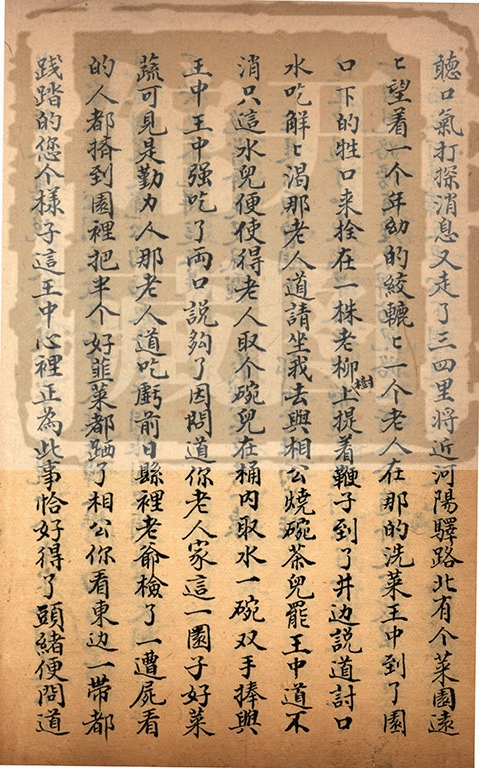 聴口氣打探消息又走了三四里將近河陽驛路北有个菜園遠
ヒ望着一个年幼的絞轆ヒ一个老人在那的洗菜王中到了園
口下的牲口来拴在一株老柳樹上提着鞭子到了井边説道討口
水吃解ヒ渴那老人道請坐我去與相公燒碗茶兒罷王中道不
消只這水兒便使得老人取个碗兒在桶内取水一碗双手捧與
王中王中强吃了両口説夠了因問道你老人家這一園子好菜
蔬可見是勤力人那老人道吃虧前日縣裡老爺檢了一遭屍看
的人都擠到園裡把半个好韮菜都跴了相公你看東边一帶都
践踏的您个樣子這王中心裡正為此事恰好得了頭緒便問道